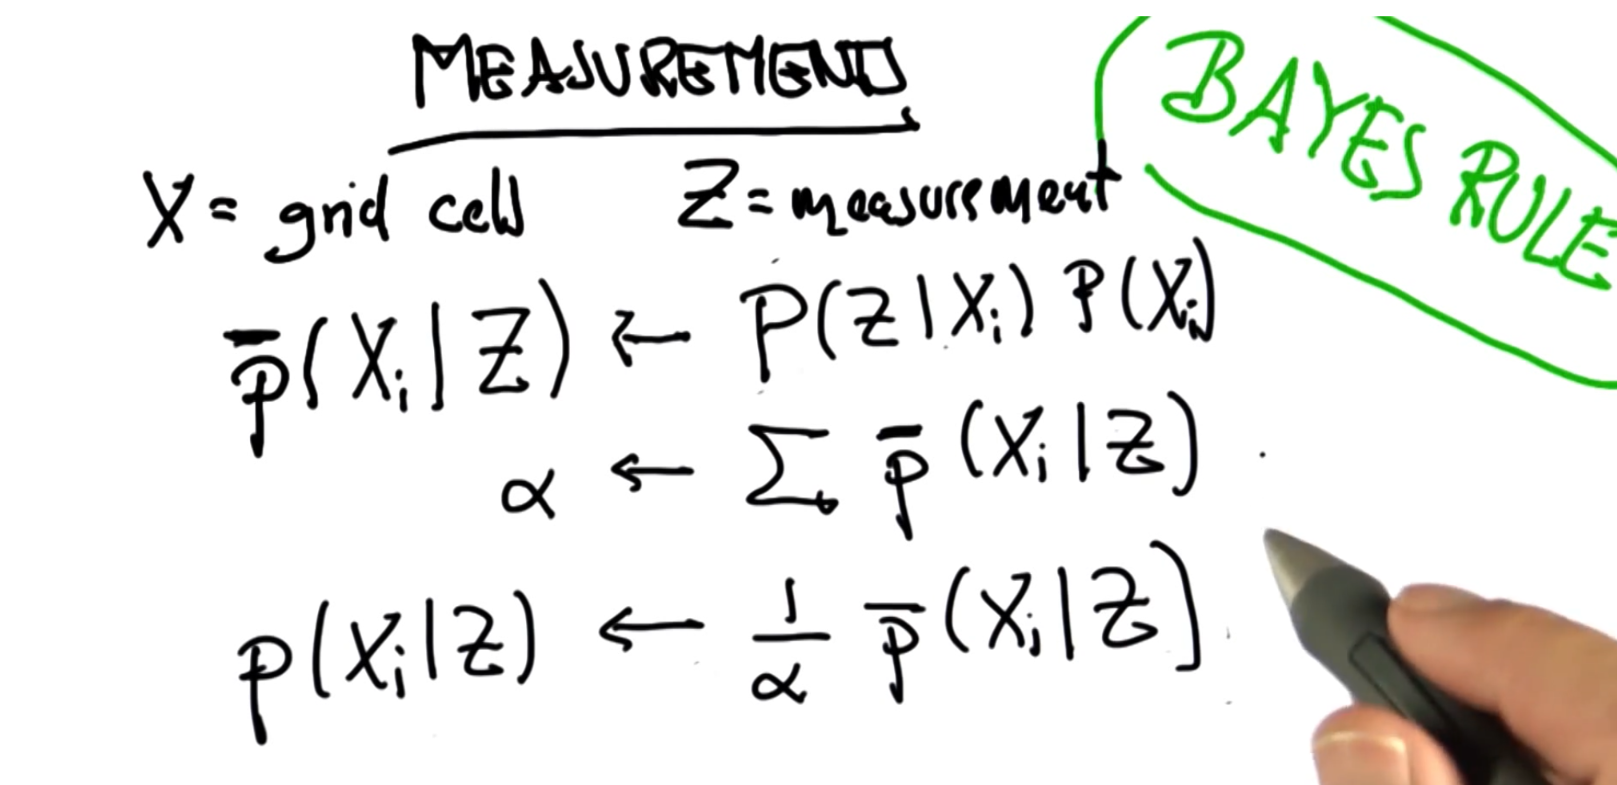 MEASUREMENT
BAYES RULE
X = grid cell Z = measurement
p̄(Xi|Z) ← P(Z|Xi) P(Xi)
α ← Σ p̄(Xi|Z)
p(Xi|Z) ← 1/α p̄(Xi|Z)